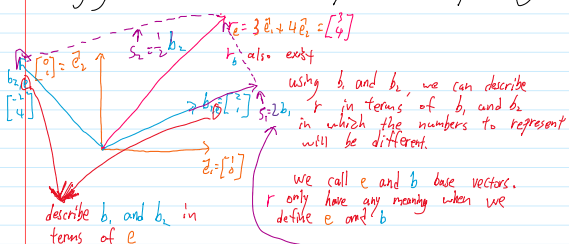 r_e = 3e⃗₁ + 4e⃗₂ = [3 4]
S₂ = ½ b₂
r_b also exist
[0 1] = e⃗₂
b₂,e
[-2 4]
using b₁ and b₂, we can describe
r in terms of b₁ and b₂
in which the numbers to represent
will be different.
b₁,e = [2 1]
S₁=2b₁
e⃗₁ = [1 0]
we call e and b base vectors.
r only have any meaning when we
define e and b
describe b₁ and b₂ in
terms of e